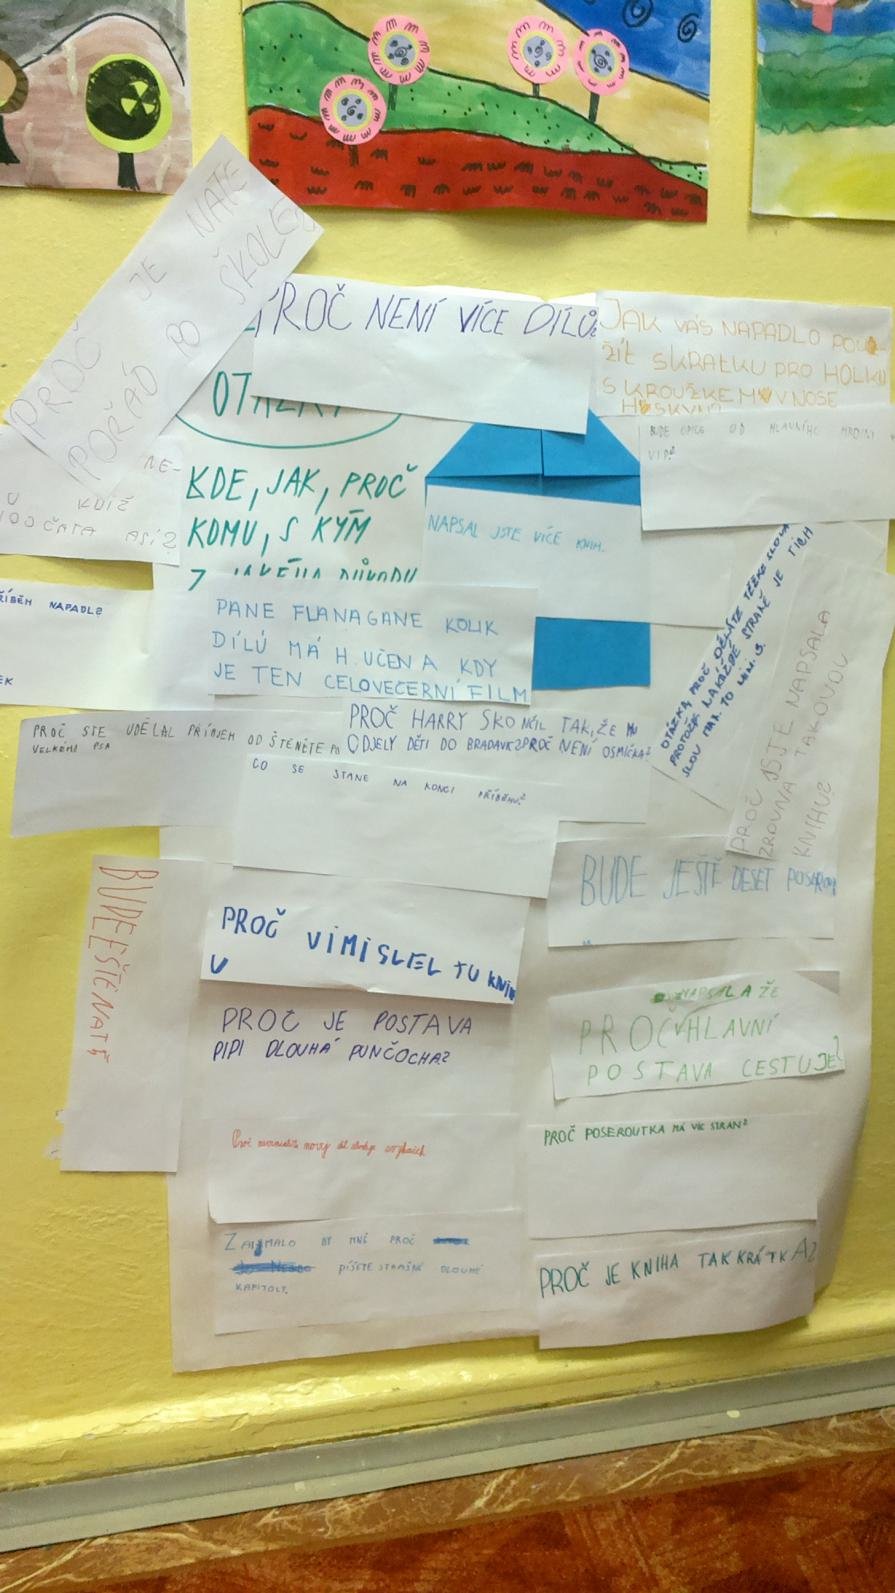 PROČ JE NATE
POŘÁD PO ŠKOLE?
PROČ NENÍ VÍCE DÍLŮ?
JAK VÁS NAPADLO POU-
ŽÍT SKRATKU PRO HOLKU
S KROUŽKEM V NOSE
OTÁZKY
KDE, JAK, PROČ
KOMU, S KÝM
Z JAKÉHO DŮVODU
NE-
U KDIŽ
ASI?
BUDE OD HLAVNÍHO HRDINY
VIP?
NAPSAL JSTE VÍCE KNIH.
PŘÍBĚH NAPADL?
EK
PANE FLANAGANE KOLIK
DÍLŮ MÁ H. UČEN A KDY
JE TEN CELOVEČERNÍ FILM
OTÁZKA, PROČ DĚLÁTE TĚŽKE SLOVA
PROTOŽE NAKAŽDÉ STRANĚ JE TĚCH
SLOV MAX. TO MIN. 3.
PROČ JSTE NAPSALA
ZROVNA TAKOVOU
KNIHU?
PROČ STE UDĚLAL PŘÍBJEH OD ŠTĚNĚTE PO
VELKÉHO PSA
PROČ HARRY SKONČIL TAK, ŽE MU
ODJELY DĚTI DO BRADAVIC? PROČ NENÍ OSMIČKA?
CO SE STANE NA KONCI PŘÍBĚHU?
BUDE JEŠTĚ DESET POSEROU
BUDE EŠTĚ NATE
PROČ VIMISLEL TU KNIH
U
NAPSALA ŽE
PROČ HLAVNÍ
POSTAVA CESTUJE?
PROČ JE POSTAVA
PIPI DLOUHÁ PUNČOCHA?
Proč nový díl
PROČ POSEROUTKA MÁ VÍC STRAN?
ZAJÍMALO BY MNĚ PROČ
PÍŠETE STRAŠNĚ DLOUHÉ
KAPITOLY.
PROČ JE KNIHA TAK KRÁTKA?